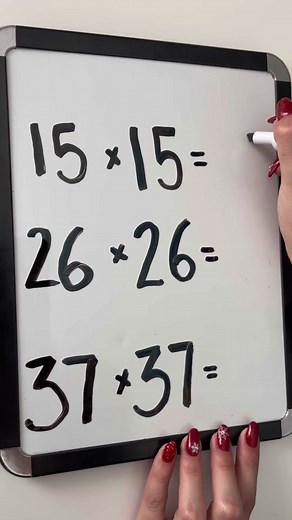 15 × 15 =
26 × 26 =
37 × 37 =